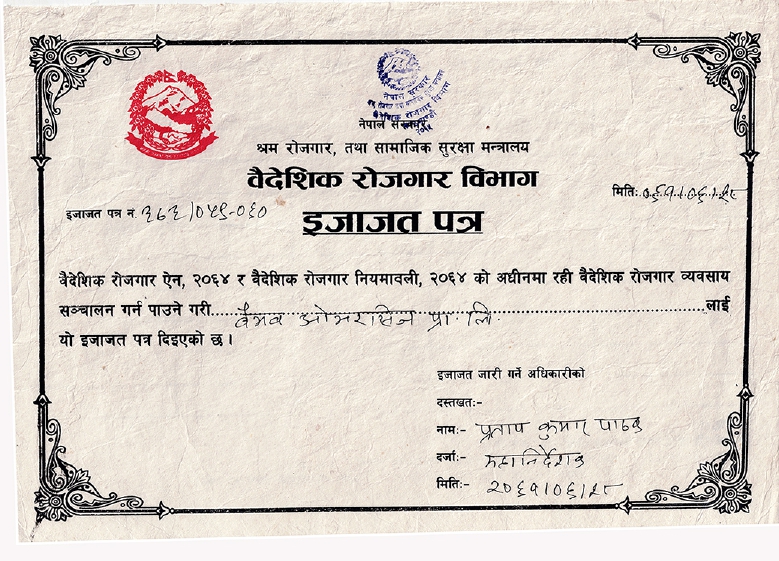 नेपाल सरकार
श्रम रोजगार, तथा सामाजिक सुरक्षा मन्त्रालय
वैदेशिक रोजगार विभाग
मितिः
इजाजत पत्र न. ३८३/०५९-०६०
इजाजत पत्र
वैदेशिक रोजगार ऐन, २०६४ र वैदेशिक रोजगार नियमावली, २०६४ को अधीनमा रही वैदेशिक रोजगार व्यवसाय
सञ्चालन गर्न पाउने गरी वैभव ओभरसिज प्रा. लि. लाई
यो इजाजत पत्र दिइएको छ ।
इजाजत जारी गर्ने अधिकारीको
दस्तखतः-
नामः- प्रताप कुमार पाठक
दर्जाः- महानिर्देशक
मितिः- २०६१/०६/२८